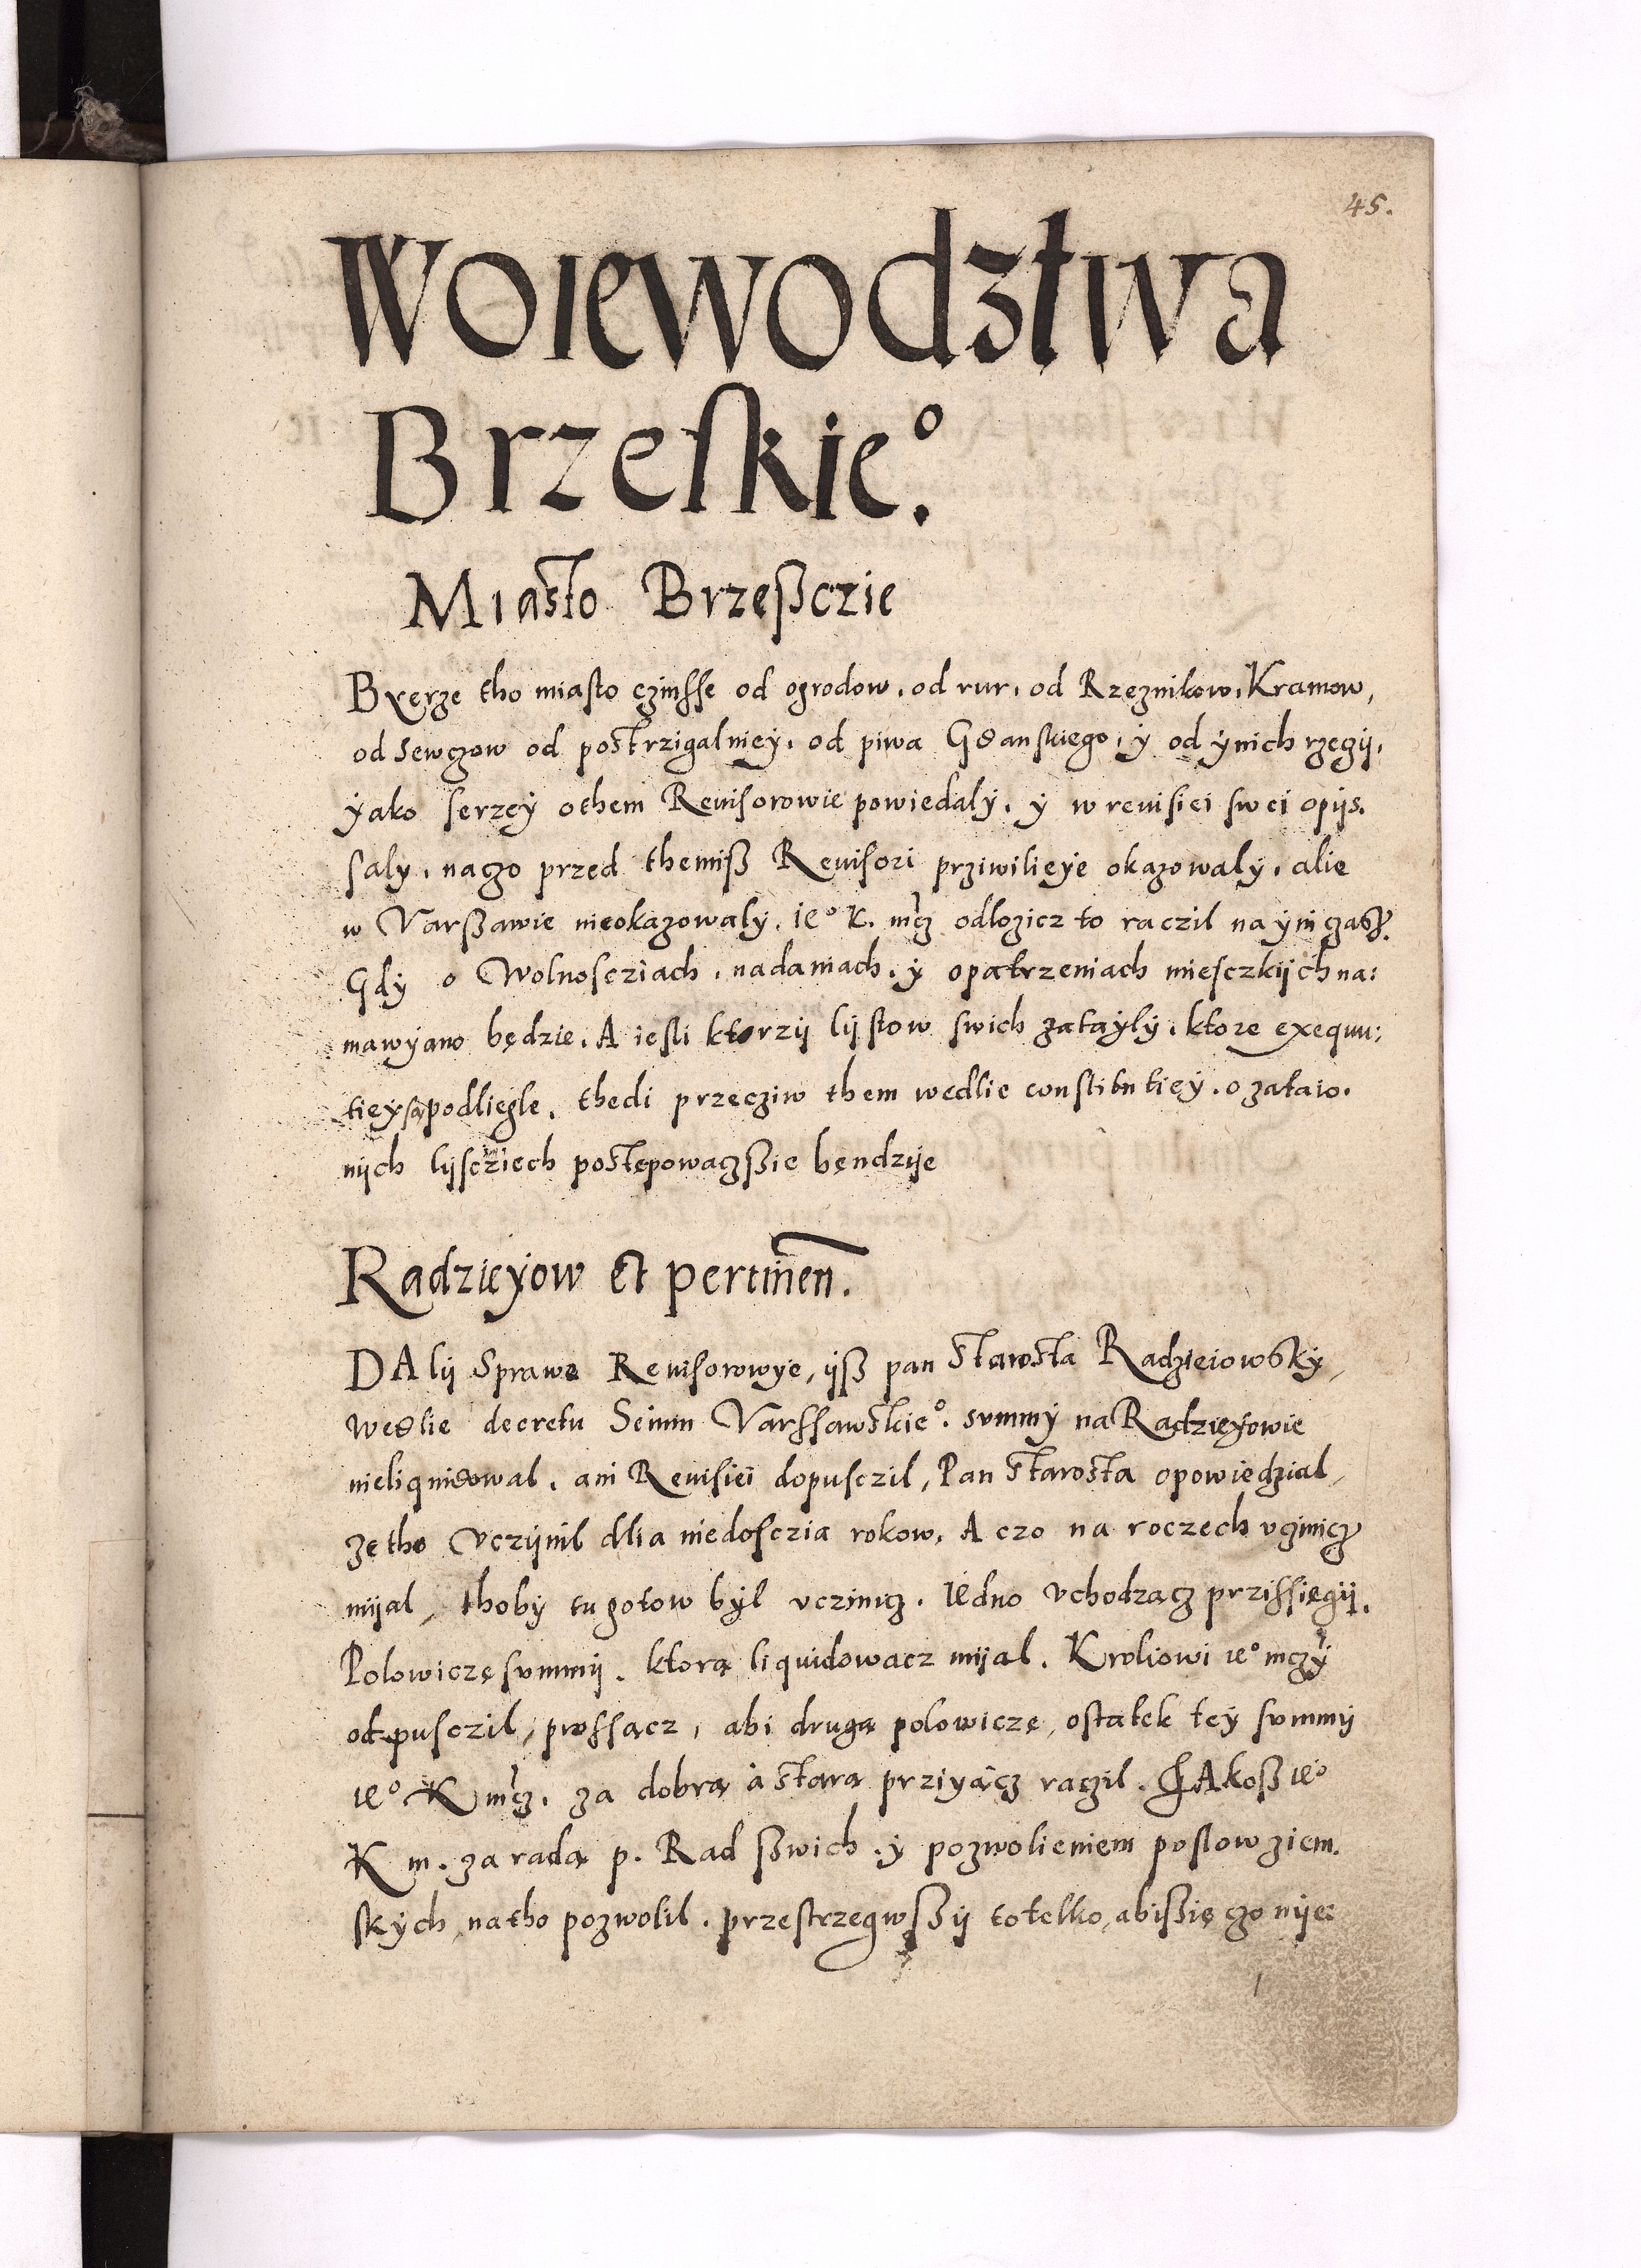 45.
Woiewodztwa
Brzeskie°.
Miasto Brzeßczie
Byerze tho miasto czinsse od ogrodow, od rur, od Rzeznikow, Kramow,
od sewczow od postrzigalniey, od piwa Gdanskiego, y od ynich rzeczij,
yako serzey othem Reuisorowie powiedaly, y w reuisiei swei opijs.
saly, naczo przed themiß Reuisori prziwilieye okazowaly, alie
w Varßawie nieokazowaly. Ie° K. mcz odlozicz to raczil na yni czasz.
Gdy o Wolnoscziach, nadaniach, y opatrzeniach miesczkijch na:
mawyano będzie. A iesli ktorzij lijstow swich zatayly, ktore exequu:
tiey są podliegle, thedi przecziw them wedlie constitutiey, o zataio.
nijch lijscziech postępowaczßie bęndzije
Radzieyow et pertinen.
DAlij sprawę Reuisorowye, ijß pan starosta Radzieiowsky,
wedlie decretu Seimu Varssawskie°. summy na Radzieyowie
nieliquidowal, ani Reuisiei dopusczil, Pan starosta opowiedzial,
ze tho vczijnil dlia niedosczia rokow, A czo na roczech vczinicz
mijal, thoby tu gotow byl vczinicz. Iedno vchodzącz przissięgij.
Polowiczę summij, ktorą liquidowacz mijal, Kroliowi ie° mczy
odpusczil, prossącz, abi drugą polowiczę, ostatek tey summij
ie° K mcz. za dobrą a starą przyiącz raczil. IAkoß ie°
K m. za radą p. Rad ßwich, y pozwolieniem poslow ziem.
skych, na tho pozwolil. przestrzegwßij to telko, abißię czo nije: